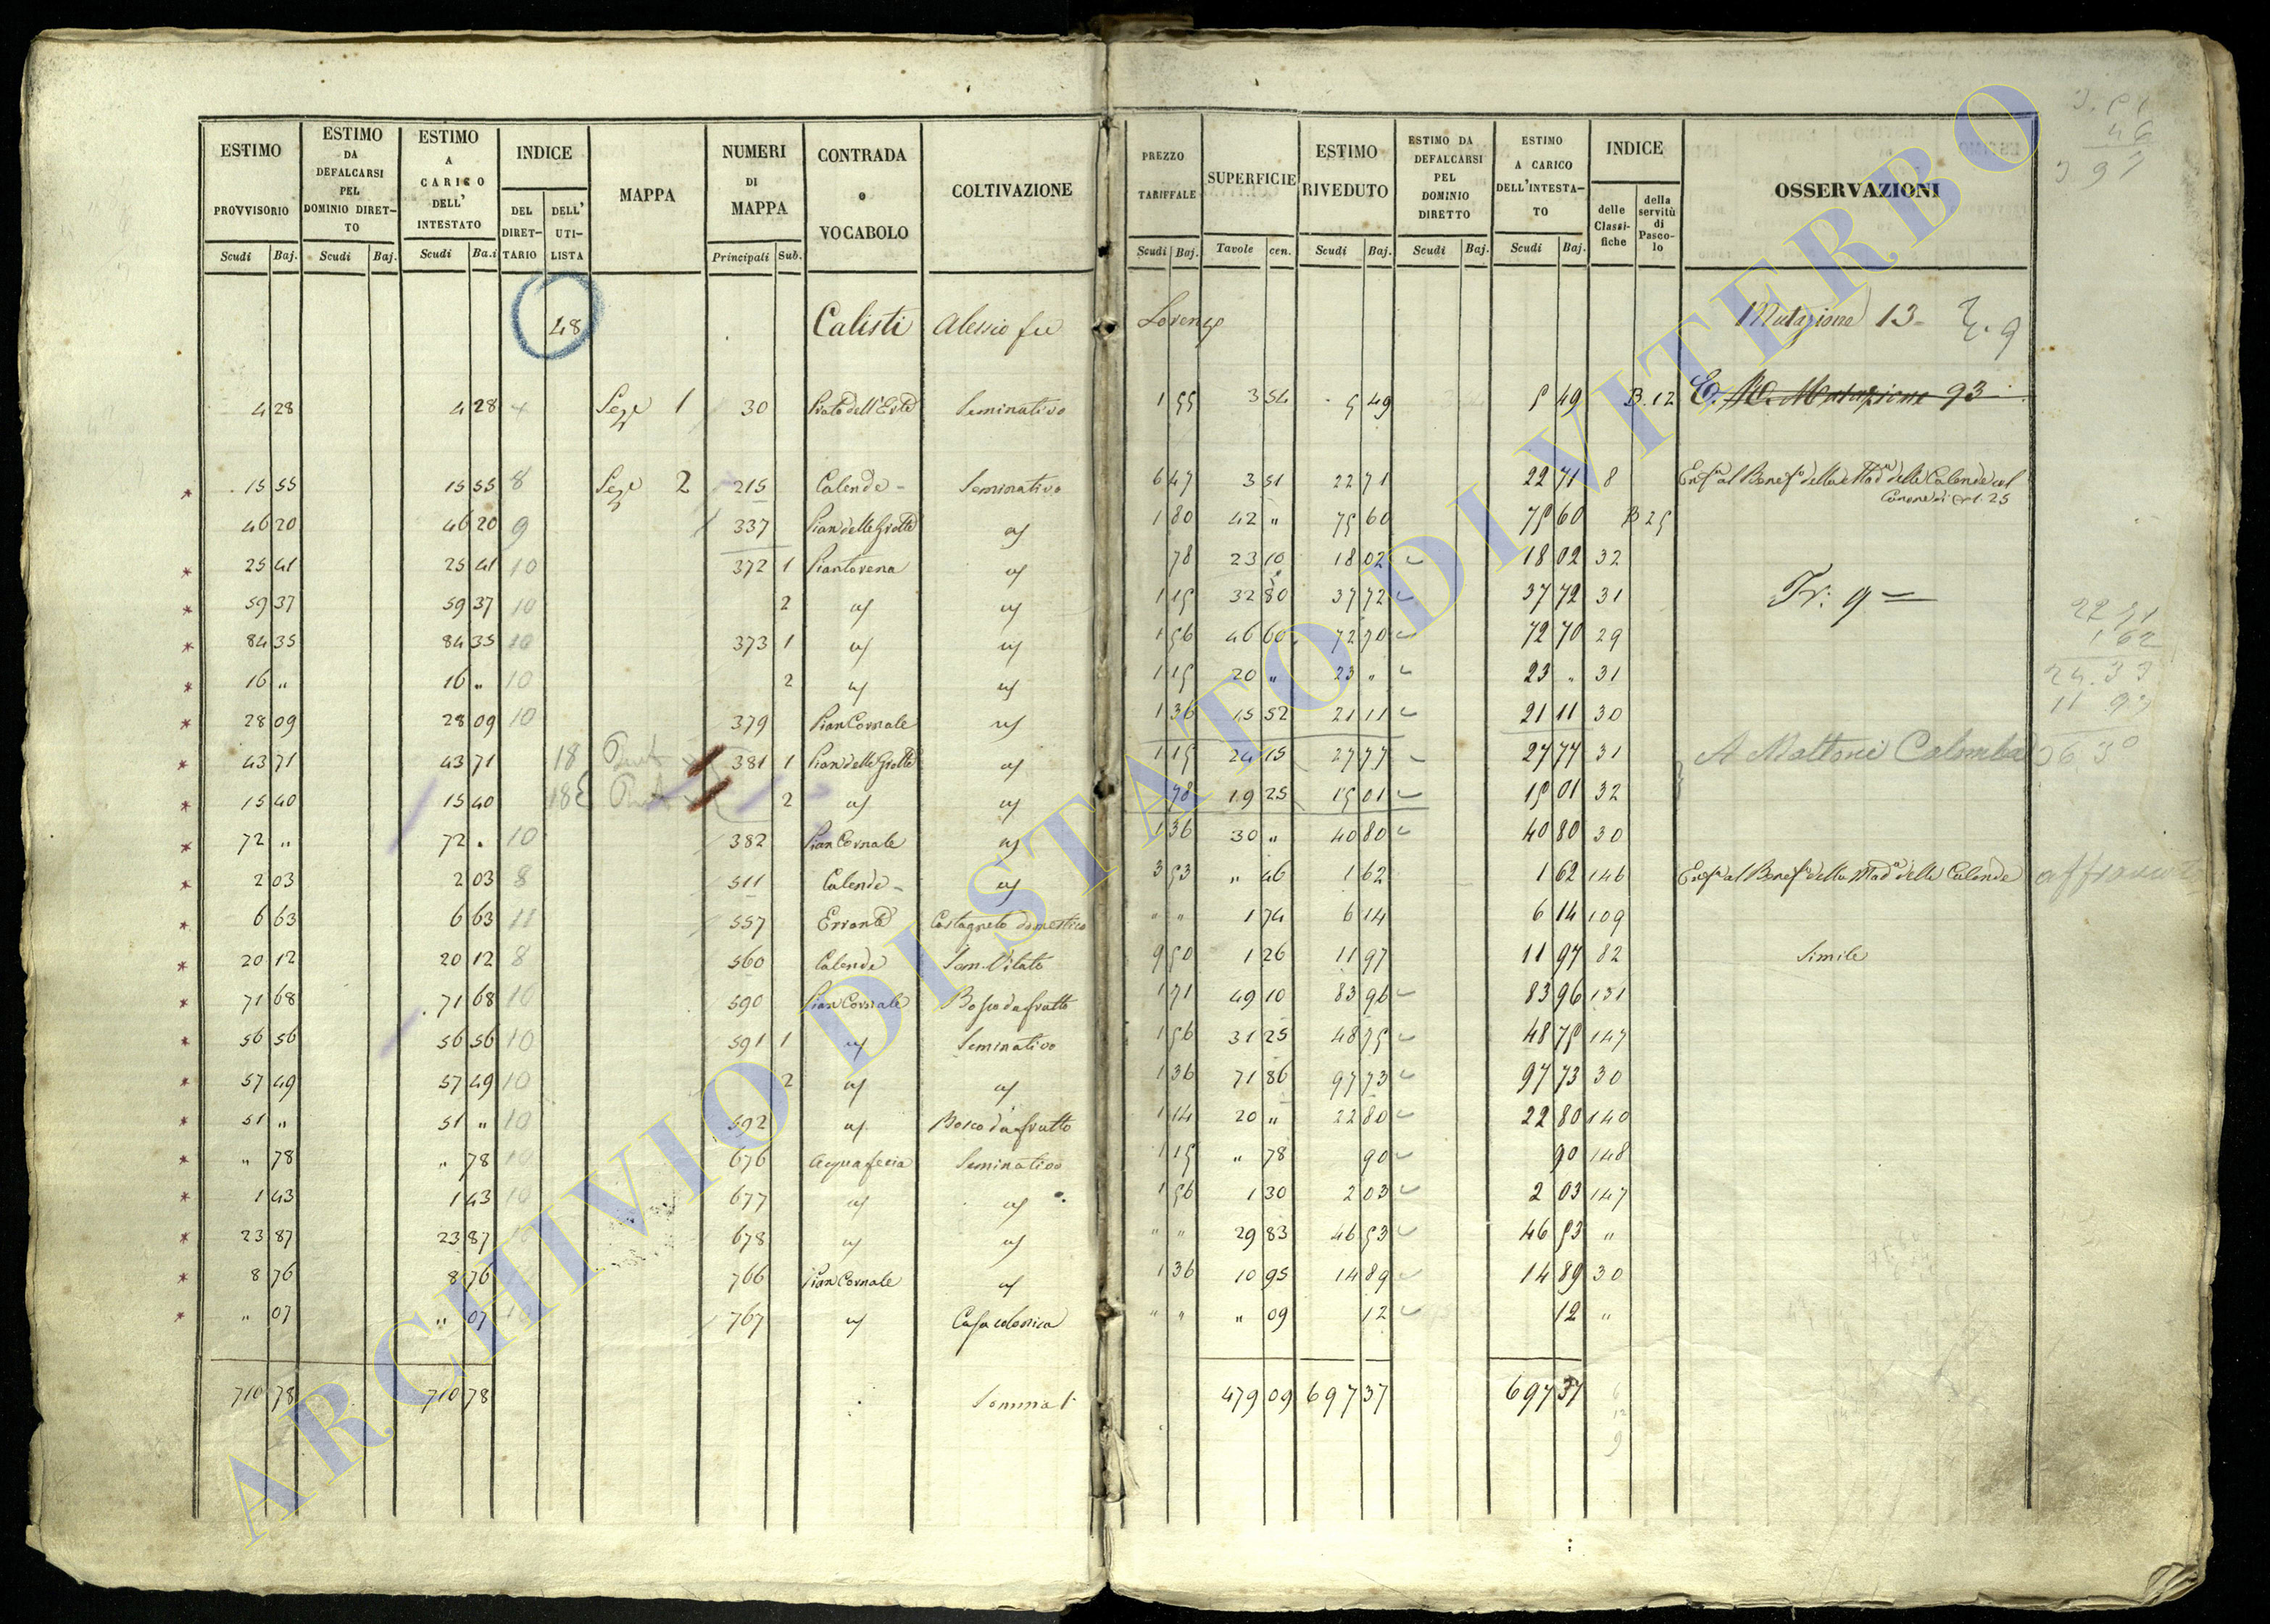 ESTIMO PROVVISORIO Scudi Baj.
ESTIMO DA DEFALCARSI PEL DOMINIO DIRETTO Scudi Baj.
ESTIMO A CARICO DELL' INTESTATO Scudi Ba.i
INDICE DEL DIRETTARIO DELL' UTILISTA
MAPPA
NUMERI DI MAPPA Principali Sub.
CONTRADA o VOCABOLO
COLTIVAZIONE
PREZZO TARIFFALE Scudi Baj.
SUPERFICIE Tavole cen.
ESTIMO RIVEDUTO Scudi Baj.
ESTIMO DA DEFALCARSI PEL DOMINIO DIRETTO Scudi Baj.
ESTIMO A CARICO DELL'INTESTATO Scudi Baj.
INDICE delle Classifiche della servitù di Pascolo
OSSERVAZIONI
48 Calisti Alessio fu Lorenzo Mutazione 13
4 28 4 28 1 30 Seminativo 1 55 3 54 5 49 5 49 B. 12 Mutazione 93
15 55 15 55 8 2 215 Calende Seminativo 6 47 3 51 22 71 22 71 8
46 20 46 20 9 337 Pian delle Grotte 1 80 42 " 75 60 75 60 B 25
25 41 25 41 10 372 1 78 23 10 18 02 18 02 32
59 37 59 37 10 2 1 15 32 80 37 72 37 72 31 Tr: 9
84 35 84 35 10 373 1 1 56 46 60 72 70 72 70 29
16 " 16 " 10 2 1 15 20 " 23 " 23 " 31
28 09 28 09 10 379 Pian Cornale 1 36 15 52 21 11 21 11 30
43 71 43 71 18 381 1 Pian delle Grotte 1 15 24 15 27 77 27 77 31 A Mattoni Colomba
15 40 15 40 18 2 78 19 25 15 01 15 01 32
72 " 72 " 10 382 Pian Cornale 1 36 30 " 40 80 40 80 30
2 03 2 03 8 511 Calende 3 53 " 46 1 62 1 62 146
6 63 6 63 11 557 Castagneto domestico " " 1 74 6 14 6 14 109
20 12 20 12 8 560 Calende Sem. Vitato 9 50 1 26 11 97 11 97 82 Simile
71 68 71 68 10 590 Pian Cornale Bosco da frutto 1 71 49 10 83 96 83 96 131
56 56 56 56 10 591 1 Seminativo 1 56 31 25 48 75 48 75 147
57 49 57 49 10 2 1 36 71 86 97 73 97 73 30
51 " 51 " 10 592 Bosco da frutto 1 14 20 " 22 80 22 80 140
" 78 " 78 10 676 Seminativo 1 15 " 78 90 90 148
1 43 1 43 10 677 1 56 1 30 2 03 2 03 147
23 87 23 87 678 " " 29 83 46 53 46 53 "
8 76 8 76 766 Pian Cornale 1 36 10 95 14 89 14 89 30
" 07 " 07 767 Casa colonica " " " 09 12 12 "
710 78 710 78 479 09 697 37 697 37
ARCHIVIO DI STATO DI VITERBO